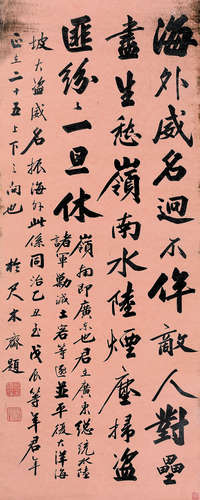 海外威名迥不侔敵人對壘
盡生愁嶺南水陸煙塵掃盜
匪紛々一旦休
嶺南即廣东也君立廣東總統水陸
諸軍勦滅土客等匪並平後大洋海
坡大盜威名振海外此係同治乙丑至戊辰等年君年
正立二十五上下之向也
於尺木齋題